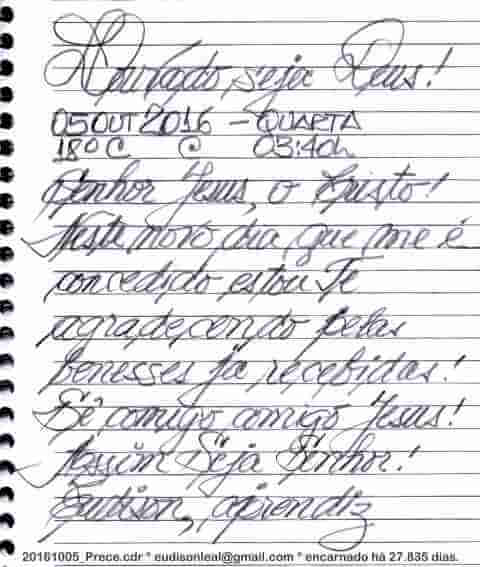 Louvado seja Deus!
05 OUT 2016 - QUARTA
18º C C 03:40h
Senhor Jesus, o Cristo!
Neste novo dia que me é
concedido estou Te
agradecendo pelas
benesses já recebidas!
Sê comigo, comigo Jesus!
Assim Seja Senhor!
Eudison, aprendiz
20161005_Prece.cdr * eudisonleal@gmail.com * encarnado há 27.835 dias.